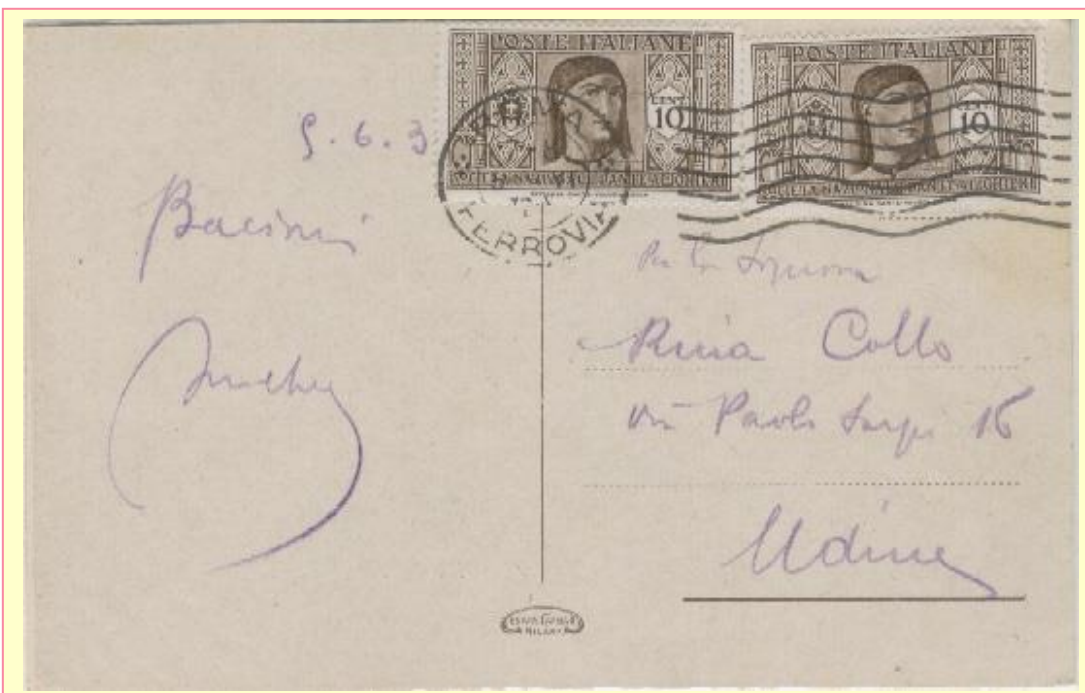 POSTE ITALIANE
CENT 10
SOCIETA NAZIONALE DANTE ALIGHIERI
POSTE ITALIANE
CENT 10
SOCIETA NAZIONALE DANTE ALIGHIERI
FERROVIA
5.6.3
Bacini
Per la Signora
Rina Collo
via Paolo Sarpi 16
Udine
MILANO